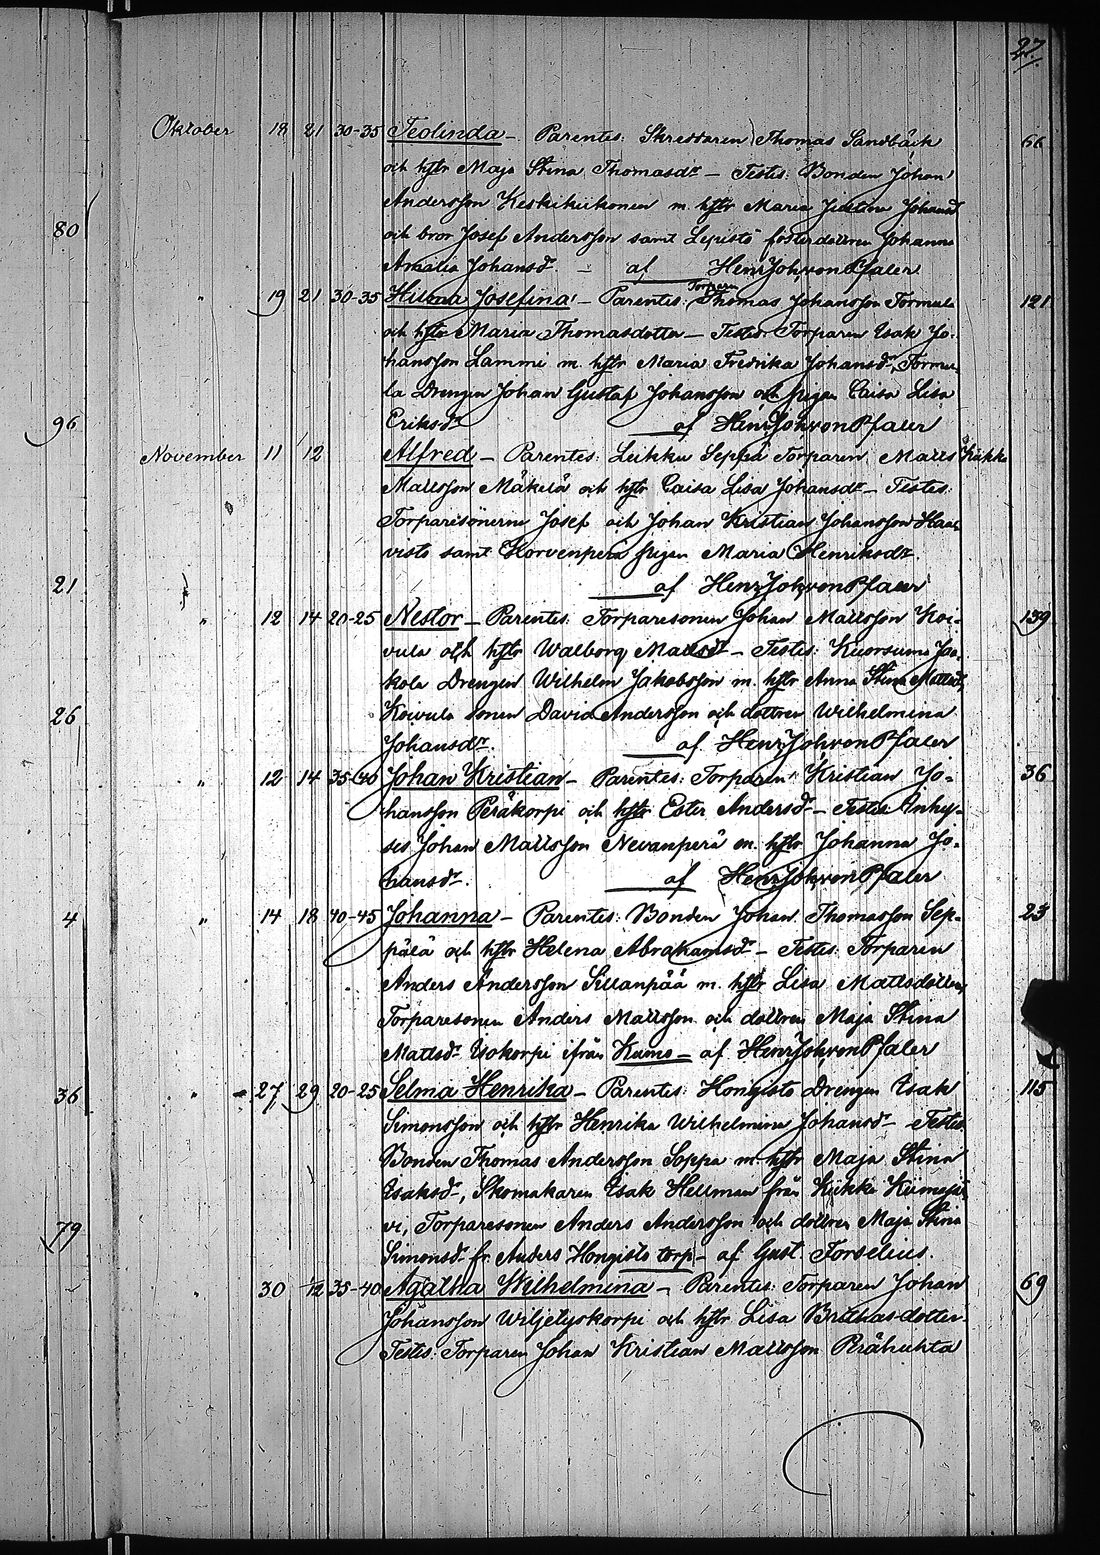 27.
Oktober 18 21 30-35 Teolinda - Parentes: Skreddaren Thomas Sandbäck 66
och hstr Maja Stina Thomasdr - Testes: Bonden Johan
80 Andersson Keskikiikonen m. hstr Maria Justina Johansd
och bror Josef Andersson samt Lepistö fosterdottren Johanna
Amalia Johansdr. - af Henr Joh von Pfaler
" 19 21 30-35 Hilma Josefina - Parentes: Torparen Thomas Johansson Tormula 121
och hstr Maria Thomasdotter - Testes: Torparen Isak Jo-
hansson Lammi m. hstr Maria Fredrika Johansdr, Tormu-
la Drengen Johan Gustaf Johansson och pigan Caisa Lisa
96 Eriksdr af Henr Joh von Pfaler
November 11 12 Alfred - Parentes: Leikku Seppä Torparen Matts Kiikka
Mattsson Mäkelä och hstr Caisa Lisa Johansdr - Testes:
Torparesönerne Josef och Johan Kristian Johansson Haa-
visto samt Korvenperä pigan Maria Henriksdr.
21 af Henr Joh von Pfaler
" 12 14 20-25 Nestor - Parentes: Torparesonen Johan Mattsson Koi- 139
vula och hstr Walborg Mattsdr - Testes: Kuorsumo Jaa-
kola Drengen Wilhelm Jakobsson m. hstr Anna Stina Mattsd,
26 Koivula sonen David Andersson och dottren Wilhelmina
Johansdr. af Henr Joh von Pfaler
" 12 14 35-40 Johan Kristian - Parentes: Torparen Kristian Jo- 36
hansson Peräkorpi och hstr Ester Andersdr - Testes Inhy-
ses Johan Mattsson Nevanperä m. hstr Johanna Jo-
hansdr. af Henr Joh von Pfaler
4 " 14 18 40-45 Johanna - Parentes: Bonden Johan Thomasson Sep- 23
pälä och hstr Helena Abrahamsdr - Testes: Torparen
Anders Andersson Sillanpää m. hstr Lisa Mattsdotter,
Torparesonen Anders Mattsson och dottren Maja Stina
Mattsdr Isokorpi ifrån Kumo - af Henr Joh von Pfaler
36 " 27 29 20-25 Selma Henrika - Parentes: Hongisto Drengen Isak 115
Simonsson och hstr Henrika Wilhelmina Johansdr - Testes
Bonden Thomas Andersson Soppa m. hstr Maja Stina
Isaksdr, Skomakaren Isak Hellman från Kiikka Kiimajär-
79 vi, Torparesonen Anders Andersson och dottren Maja Stina
Simonsdr fr. Anders Hongisto torp - af Gust. Forselius.
" 30 1/12 35-40 Agatha Wilhelmina - Parentes: Torparen Johan 69
Johansson Wiljetyskorpi och hstr Lisa Brithasdotter
Testes: Torparen Johan Kristian Mattsson Perähuhta